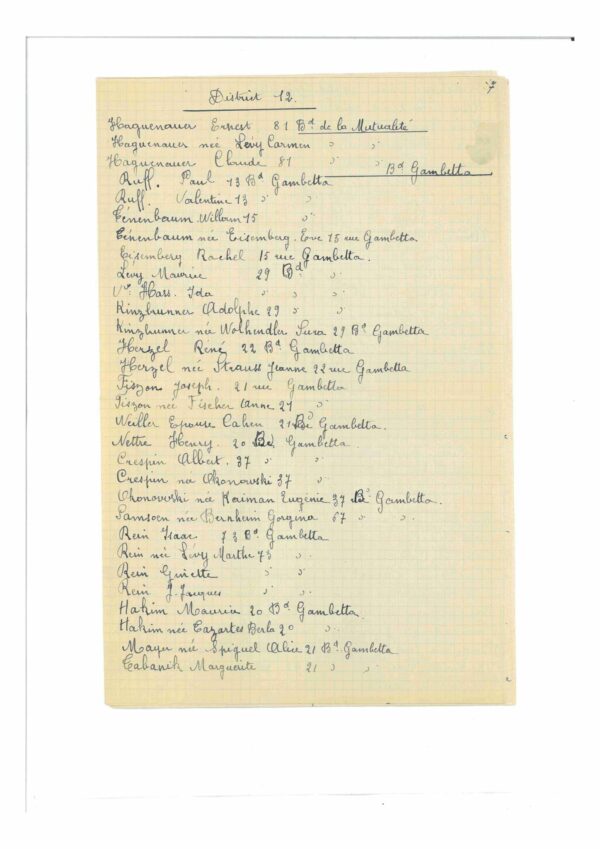 7
District 12.
Haguenauer Ernest 81 Bd de la Mutualité
Haguenauer née Lévy Carmen " "
Haguenauer Claude 81 " "
Bd Gambetta
Ruff. Paul 13 Bd Gambetta
Ruff. Valentine 13 " "
Ténenbaum William 15 "
Ténenbaum née Eisemberg. Eve 15 rue Gambetta
Eisemberg Rachel 15 rue Gambetta.
Lévy Maurice 29 Bd "
Vve Hass. Ida " " "
Kinzbrunner Adolphe 29 " "
Kinzbrunner née Wolhendler Sura 29 Bd Gambetta
Herzel René 22 Bd Gambetta
Herzel née Strauss Jeanne 22 rue Gambetta
Fiszon Joseph. 21 rue Gambetta
Fiszon née Fischer Anne 21 "
Weiller Epouse Cahen 21 Bd Gambetta.
Nettre Henry. 20 Bd Gambetta.
Crespin Albert. 37 " "
Crespin née Okonowski 37 "
Okonovski née Kaiman Eugénie 37 Bd Gambetta.
Samsoen née Bernheim Gorgina 67 " "
Rein Isaac 73 Bd Gambetta
Rein née Lévy Marthe 73 "
Rein Ginette " "
Rein J-Jacques " "
Hakim Maurice 20 Bd Gambetta.
Hakim née Cazartes Berta 20 "
Mayer née Spiquel Alice 21 Bd Gambetta
Cabanik Marguerite 21 " "